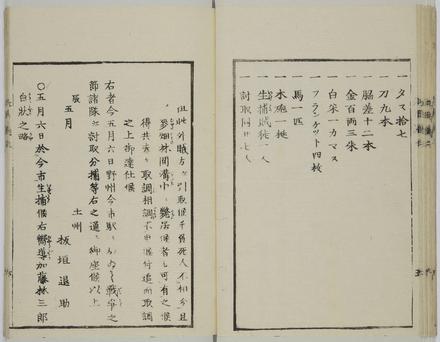 一 タス拾七
一 刀九本
一 脇差十二本
一 金百両三朱
一 白米一カマス
一 フランケット四枚
一 馬一匹
一 木砲一挺
一 生捕賊徒一人
一 討取同廿七人
且此外賊方ニ引取候手負死人不相分且
畑村間溝小蟄居候者も可有之候
得共未タ取調相調不申候付追而取調
之上御達仕候
右者今五月六日野州今市駅ニおゐて戦争之
節諸隊ニ討取分捕等右之通ニ御座候以上
辰五月
土州
板垣退助
〇五月六日於今市生捕候右嚮導加藤林三郎
白状之略